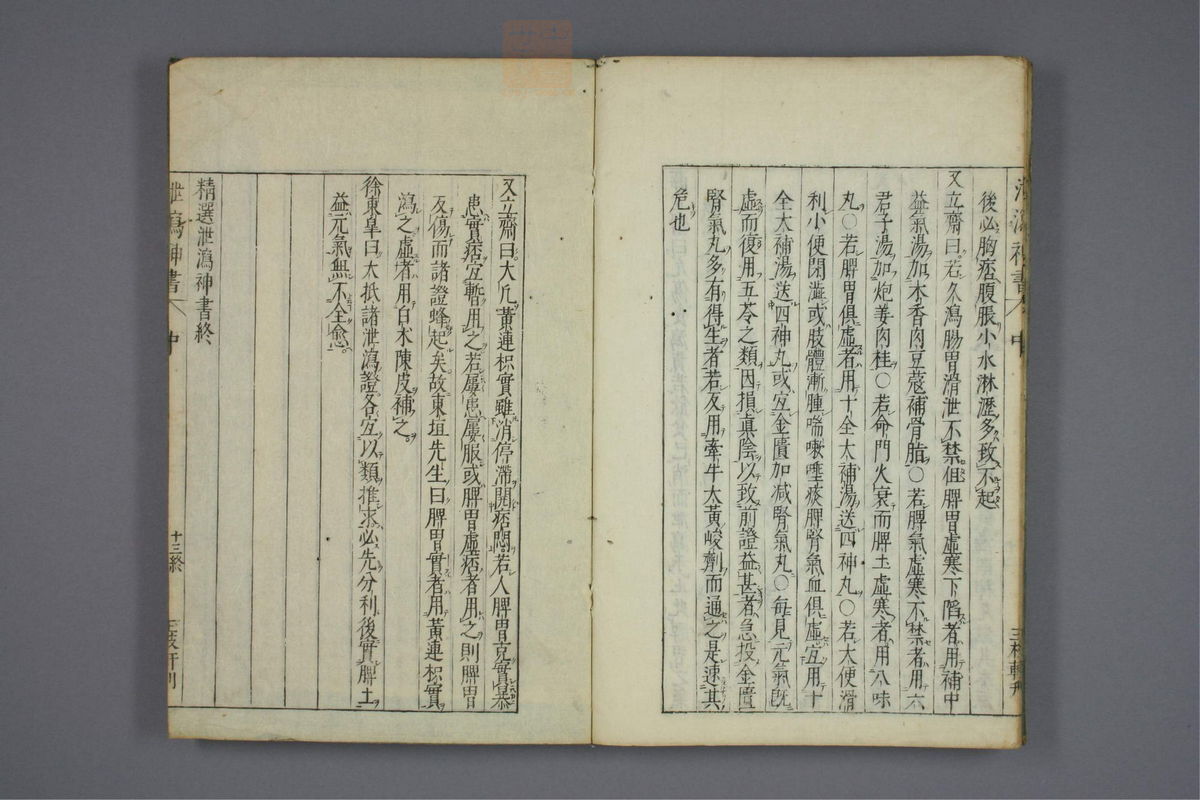 後必胸痞腹脹小水淋瀝多致不起
又立齋曰若久瀉腸胃滑泄不禁但脾胃虛寒下陷者用補中
益氣湯加木香肉豆蔻補骨脂○若脾氣虛寒不禁者用六
君子湯加炮姜肉桂○若命門火衰而脾土虛寒者用八味
丸○若脾胃俱虛者用十全大補湯送四神丸○若大便滑
利小便閉澁或肢體漸腫喘嗽唾痰脾腎氣血俱虛宜用十
全大補湯送四神丸或宜金匱加减腎氣丸○每見元氣既
虛而復用五苓之類因損眞陰以致前證益甚者急投金匱
腎氣丸多有得生者若反用牽牛大黃峻劑而通之是速其
危也
又立齋曰大凡黃連枳實雖消停滯開痞悶若人脾胃充實暴
患實痞宜暫用之若屢患屢服或脾胃虛痞者用之則脾胃
反傷而諸證蜂起矣故東垣先生曰脾胃實者用黃連枳實
瀉之虛者用白朮陳皮補之
徐東皐曰大抵諸泄瀉證各宜以類推求必先分利後實脾土
益元氣無不全愈
精選泄瀉神書終
泄瀉神書 中 十三終